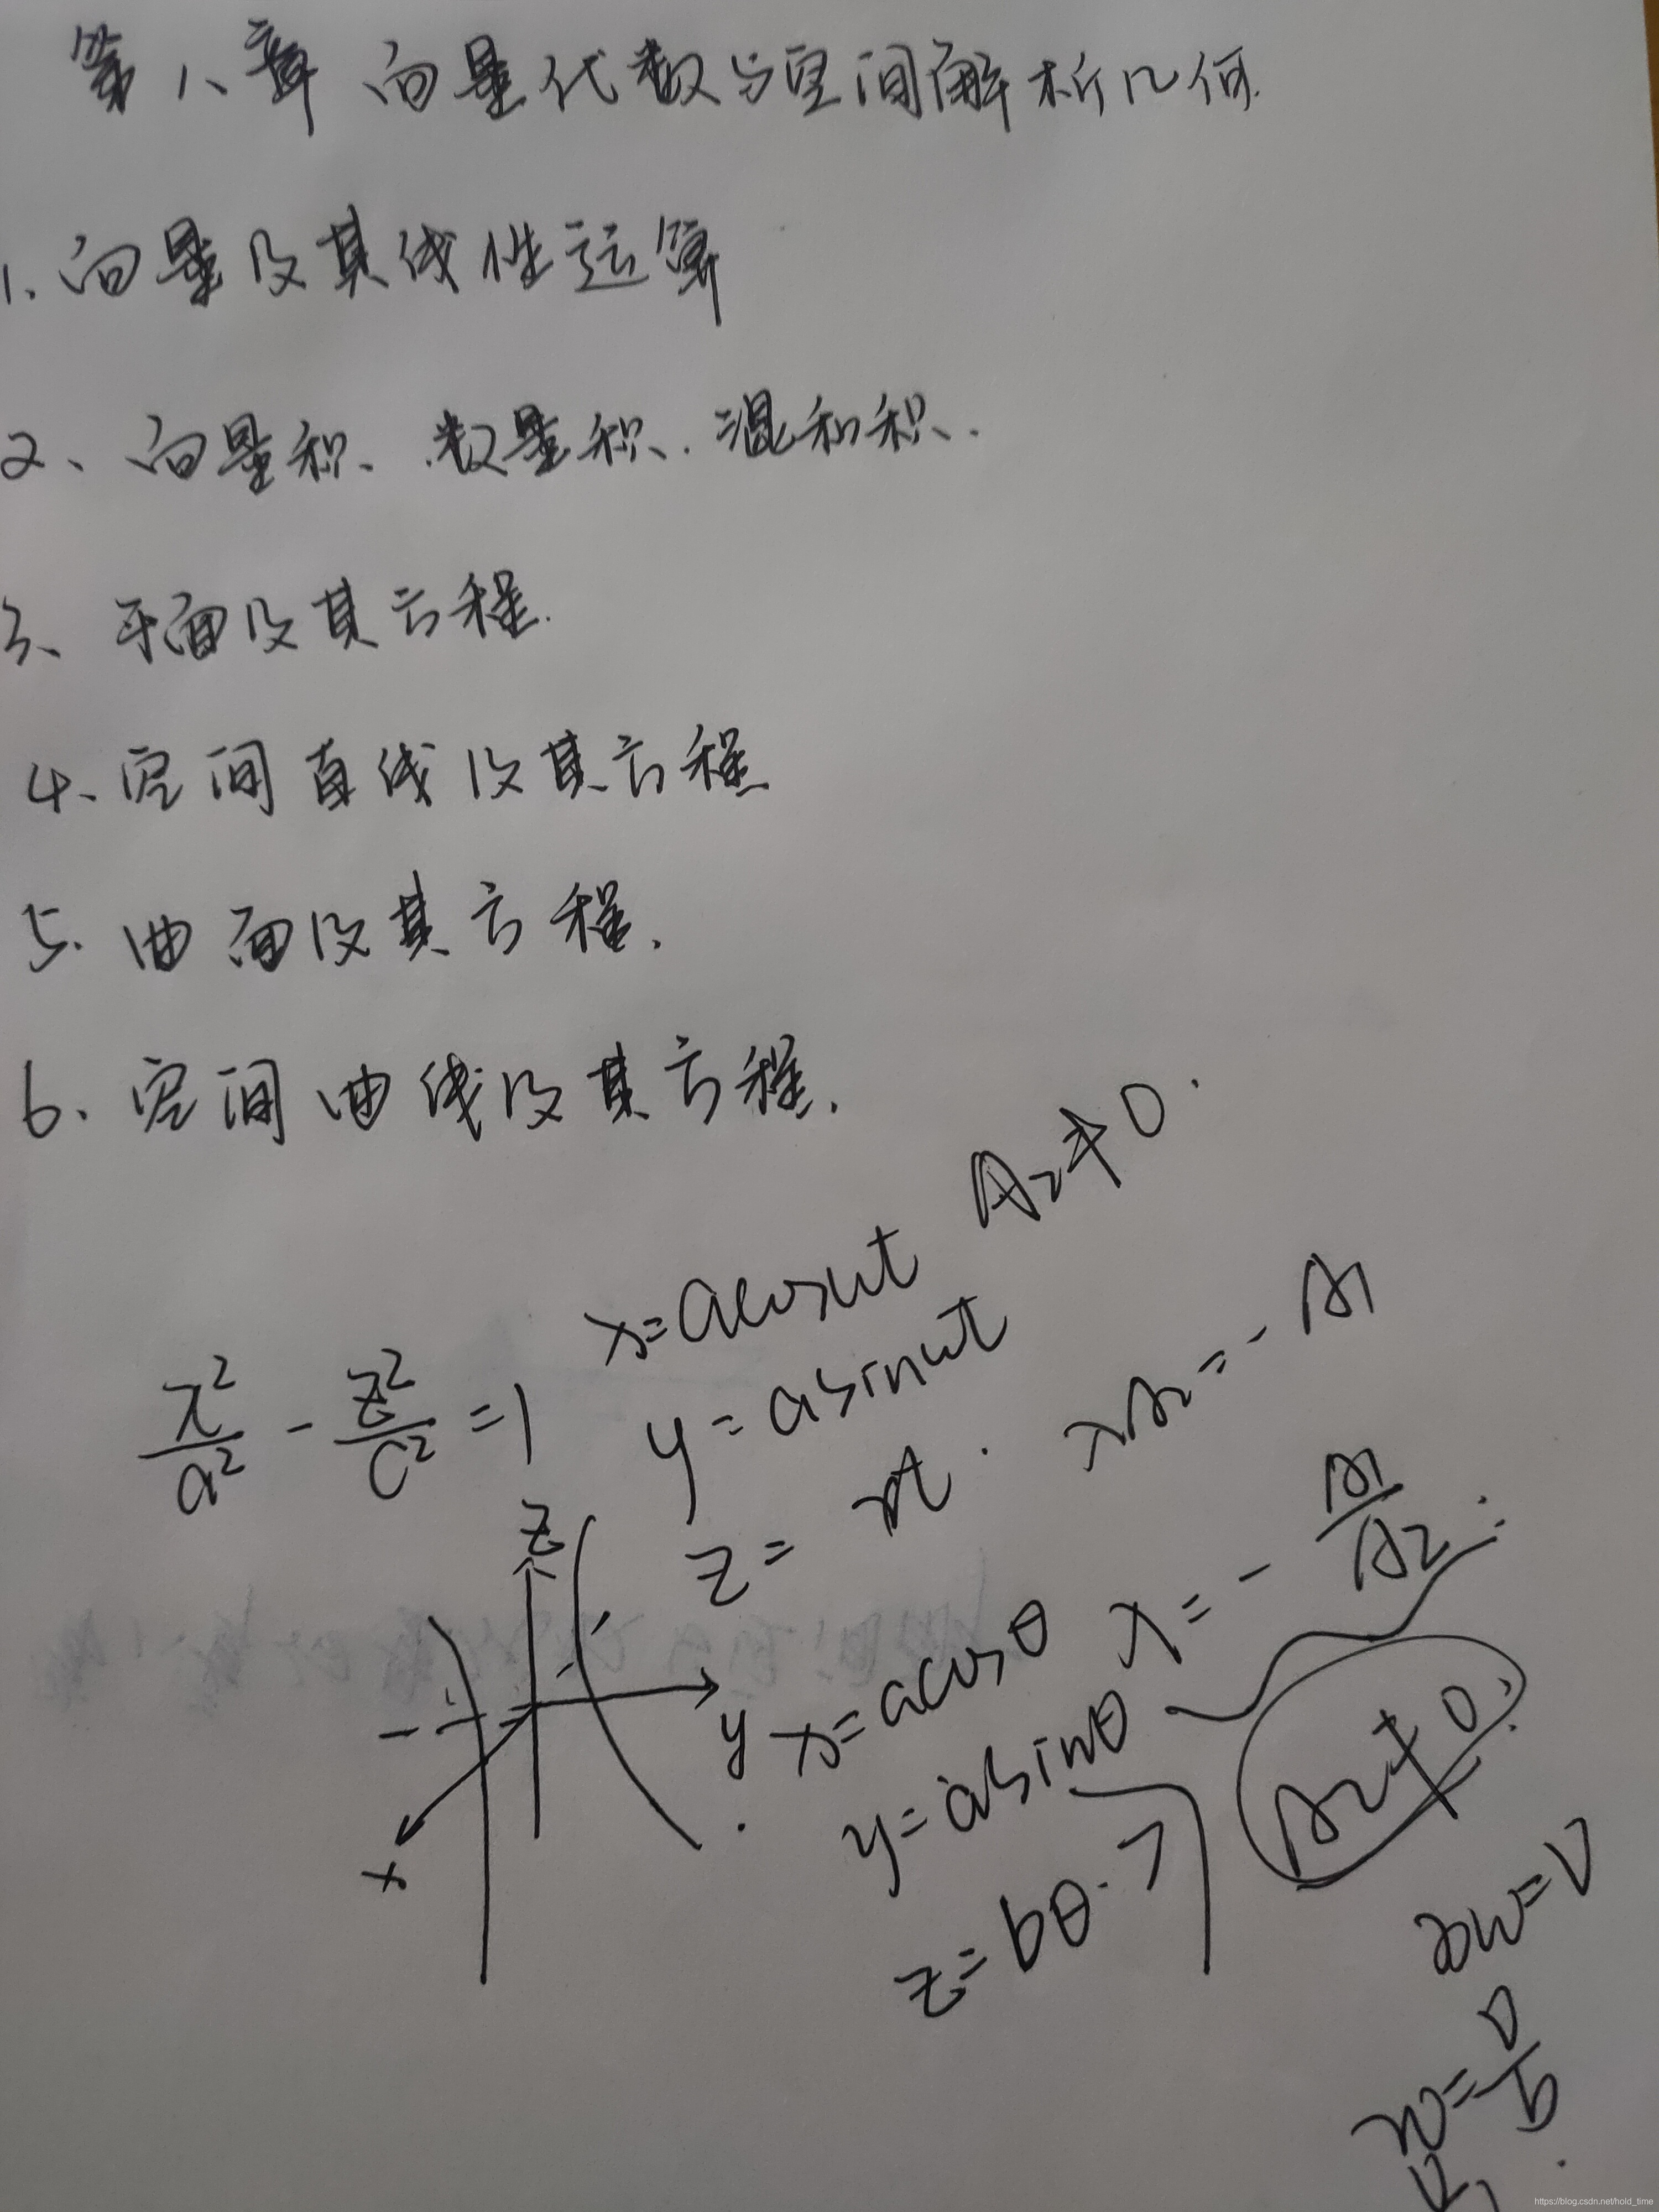 第八章 向量代数与空间解析几何.
1、向量及其线性运算
2、向量积、数量积、混和积.
3、平面及其方程.
4、空间直线及其方程
5、曲面及其方程.
6、空间曲线及其方程.
A₂≠0.
x=acosωt
y=asinωt
λA₂=-A₁
x²/a² - z²/c² =1
z=
λ=-A₁/A₂
z
y
x
x=acosθ
y=asinθ
z=bθ.
A₂≠0
https://blog.csdn.net/hold_time